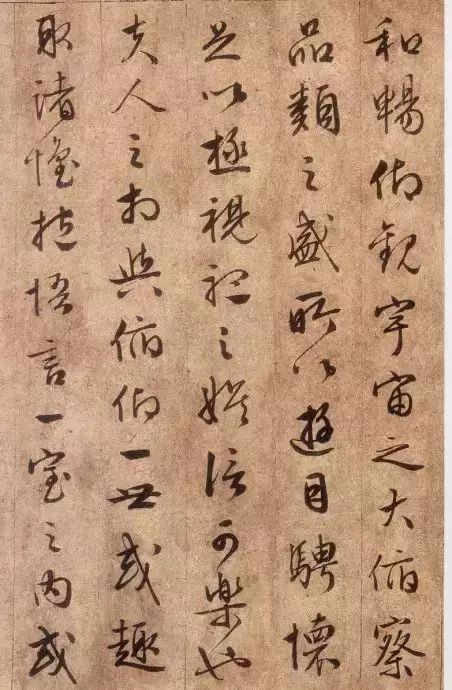 和暢仰觀宇宙之大俯察
品類之盛所以遊目騁懷
足以極視聽之娛信可樂也
夫人之相與俯仰一世或趣
取諸懷抱悟言一室之內或